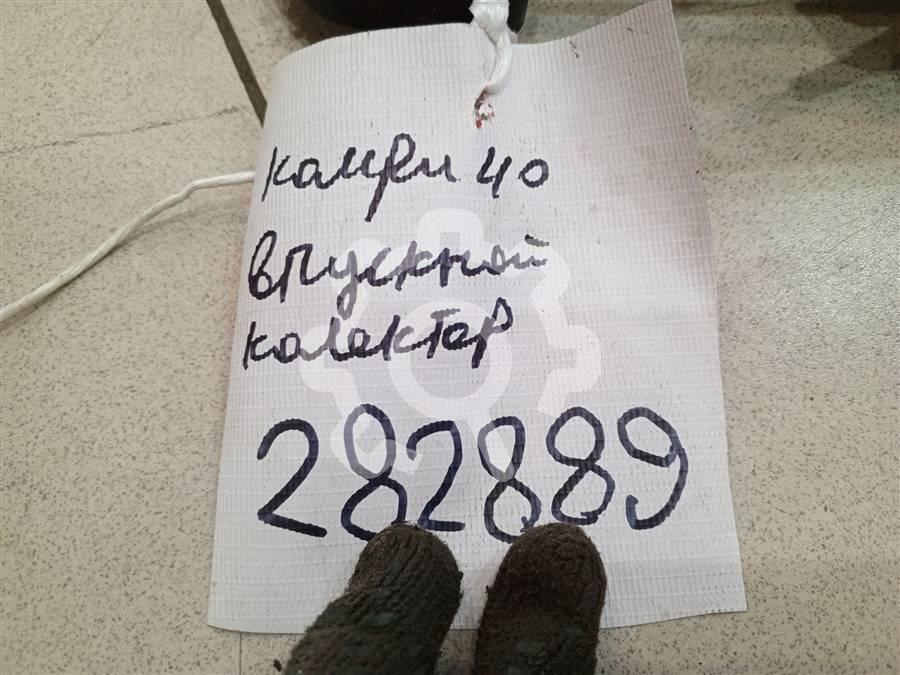 камри 40
впускной
колектор
282889